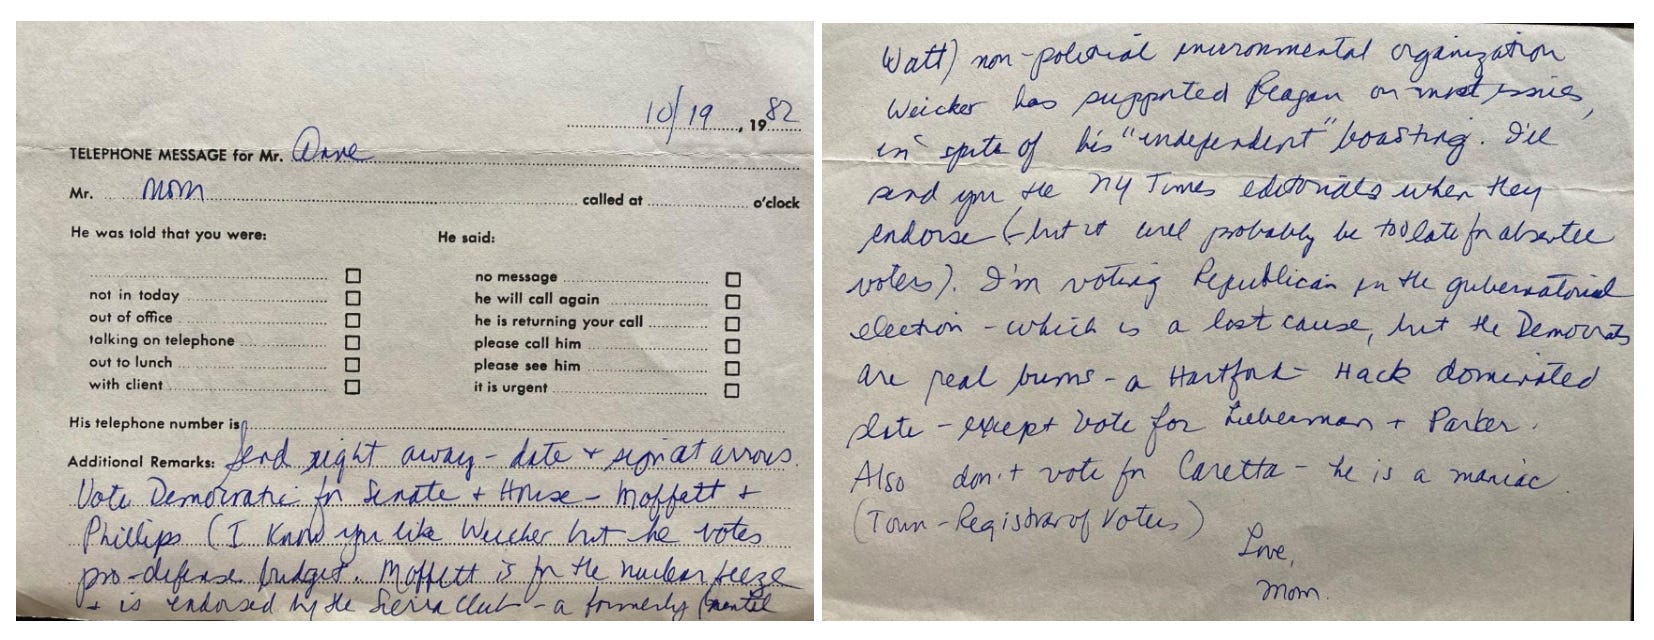 10/19, 1982
TELEPHONE MESSAGE for Mr. Anne
Mr. Mom called at o'clock
He was told that you were:
not in today
out of office
talking on telephone
out to lunch
with client
He said:
no message
he will call again
he is returning your call
please call him
please see him
it is urgent
His telephone number is
Additional Remarks: Send right away - date + sign at arrows.
Vote Democratic for Senate + House - Moffett +
Phillips (I know you like Weicker but he votes
pro-defense budget. Moffett is for the nuclear freeze
+ is endorsed by the Sierra Club - a formerly (until
Watt) non-political environmental organization
Weicker has supported Reagan on most issues,
in spite of his "independent" boasting. I'll
send you the NY Times editorials when they
endorse (-but it will probably be too late for absentee
voters). I'm voting Republican in the gubernatorial
election - which is a lost cause, but the Democrats
are real bums - a Hartford - Hack dominated
slate - except vote for Lieberman + Parker.
Also don't vote for Caretta - he is a maniac.
(Town - Registrar of Voters)
Love,
Mom.